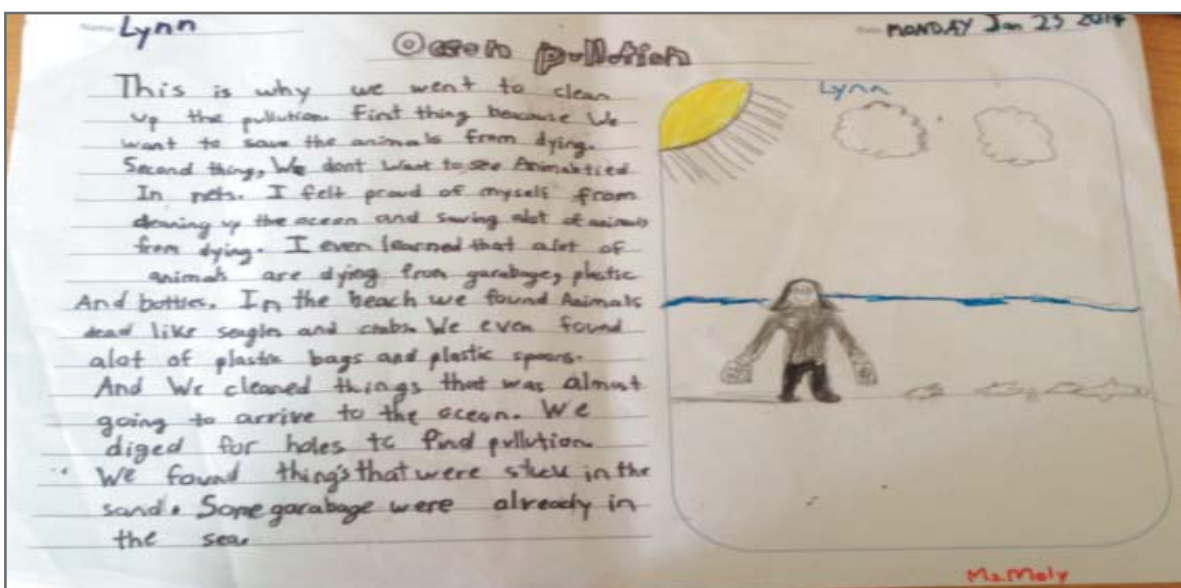 Name Lynn
MONDAY Jan 23
Ocean pullution
Lynn
This is why we went to clean
up the pullution. First thing beacause We
want to save the animals from dying.
Second thing, We dont want to see Animals tied
In nets. I felt proud of myself from
cleaning up the ocean and saving alot of animals
from dying. I even learned that alot of
animals are dying from garabage, plastic
And bottles. In the beach we found Animals
dead like seagles and crabs. We even found
alot of plastic bags and plastic spoons.
And We cleaned things that was almost
going to arrive to the ocean. We
diged for holes to find pullution.
We found things that were stuck in the
sand. Some garabage were already in
the sea.